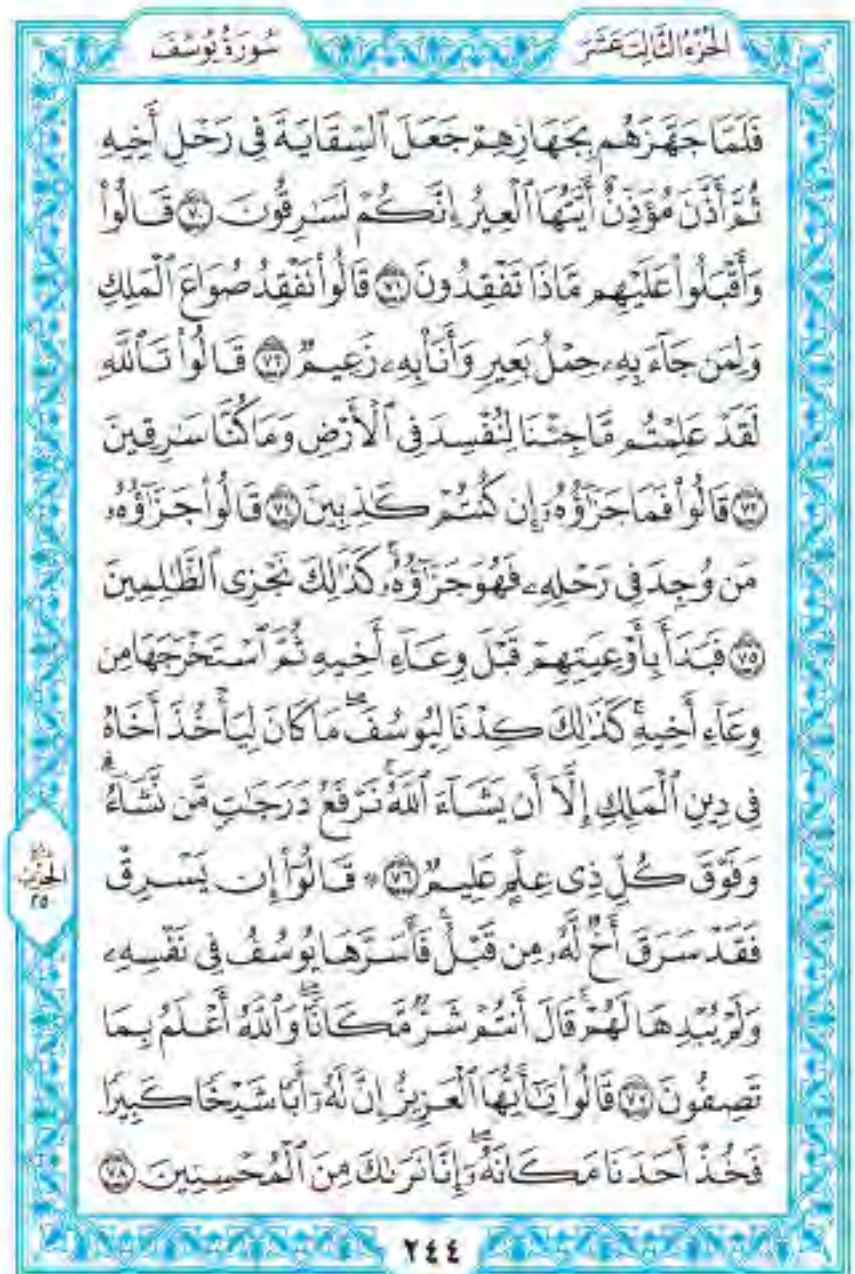 الجزء الثالث عشر
سورة يوسف
فَلَمَّا جَهَّزَهُم بِجَهَازِهِمْ جَعَلَ ٱلسِّقَايَةَ فِى رَحْلِ أَخِيهِ
ثُمَّ أَذَّنَ مُؤَذِّنٌ أَيَّتُهَا ٱلْعِيرُ إِنَّكُمْ لَسَٰرِقُونَ ٧٠ قَالُوا۟
وَأَقْبَلُوا۟ عَلَيْهِم مَّاذَا تَفْقِدُونَ ٧١ قَالُوا۟ نَفْقِدُ صُوَاعَ ٱلْمَلِكِ
وَلِمَن جَآءَ بِهِۦ حِمْلُ بَعِيرٍ وَأَنَا۠ بِهِۦ زَعِيمٌ ٧٢ قَالُوا۟ تَٱللَّهِ
لَقَدْ عَلِمْتُم مَّا جِئْنَا لِنُفْسِدَ فِى ٱلْأَرْضِ وَمَا كُنَّا سَٰرِقِينَ
٧٣ قَالُوا۟ فَمَا جَزَٰٓؤُهُۥٓ إِن كُنتُمْ كَٰذِبِينَ ٧٤ قَالُوا۟ جَزَٰٓؤُهُۥ
مَن وُجِدَ فِى رَحْلِهِۦ فَهُوَ جَزَٰٓؤُهُۥ ۚ كَذَٰلِكَ نَجْزِى ٱلظَّٰلِمِينَ
٧٥ فَبَدَأَ بِأَوْعِيَتِهِمْ قَبْلَ وِعَآءِ أَخِيهِ ثُمَّ ٱسْتَخْرَجَهَا مِن
وِعَآءِ أَخِيهِ ۚ كَذَٰلِكَ كِدْنَا لِيُوسُفَ ۖ مَا كَانَ لِيَأْخُذَ أَخَاهُ
فِى دِينِ ٱلْمَلِكِ إِلَّآ أَن يَشَآءَ ٱللَّهُ ۚ نَرْفَعُ دَرَجَٰتٍ مَّن نَّشَآءُ ۗ
وَفَوْقَ كُلِّ ذِى عِلْمٍ عَلِيمٌ ٧٦ ۞ قَالُوٓا۟ إِن يَسْرِقْ
فَقَدْ سَرَقَ أَخٌ لَّهُۥ مِن قَبْلُ ۚ فَأَسَرَّهَا يُوسُفُ فِى نَفْسِهِۦ
وَلَمْ يُبْدِهَا لَهُمْ ۚ قَالَ أَنتُمْ شَرٌّ مَّكَانًا ۖ وَٱللَّهُ أَعْلَمُ بِمَا
تَصِفُونَ ٧٧ قَالُوا۟ يَٰٓأَيُّهَا ٱلْعَزِيزُ إِنَّ لَهُۥٓ أَبًا شَيْخًا كَبِيرًا
فَخُذْ أَحَدَنَا مَكَانَهُۥٓ ۖ إِنَّا نَرَىٰكَ مِنَ ٱلْمُحْسِنِينَ ٧٨
الحزب
٢٥
٢٤٤